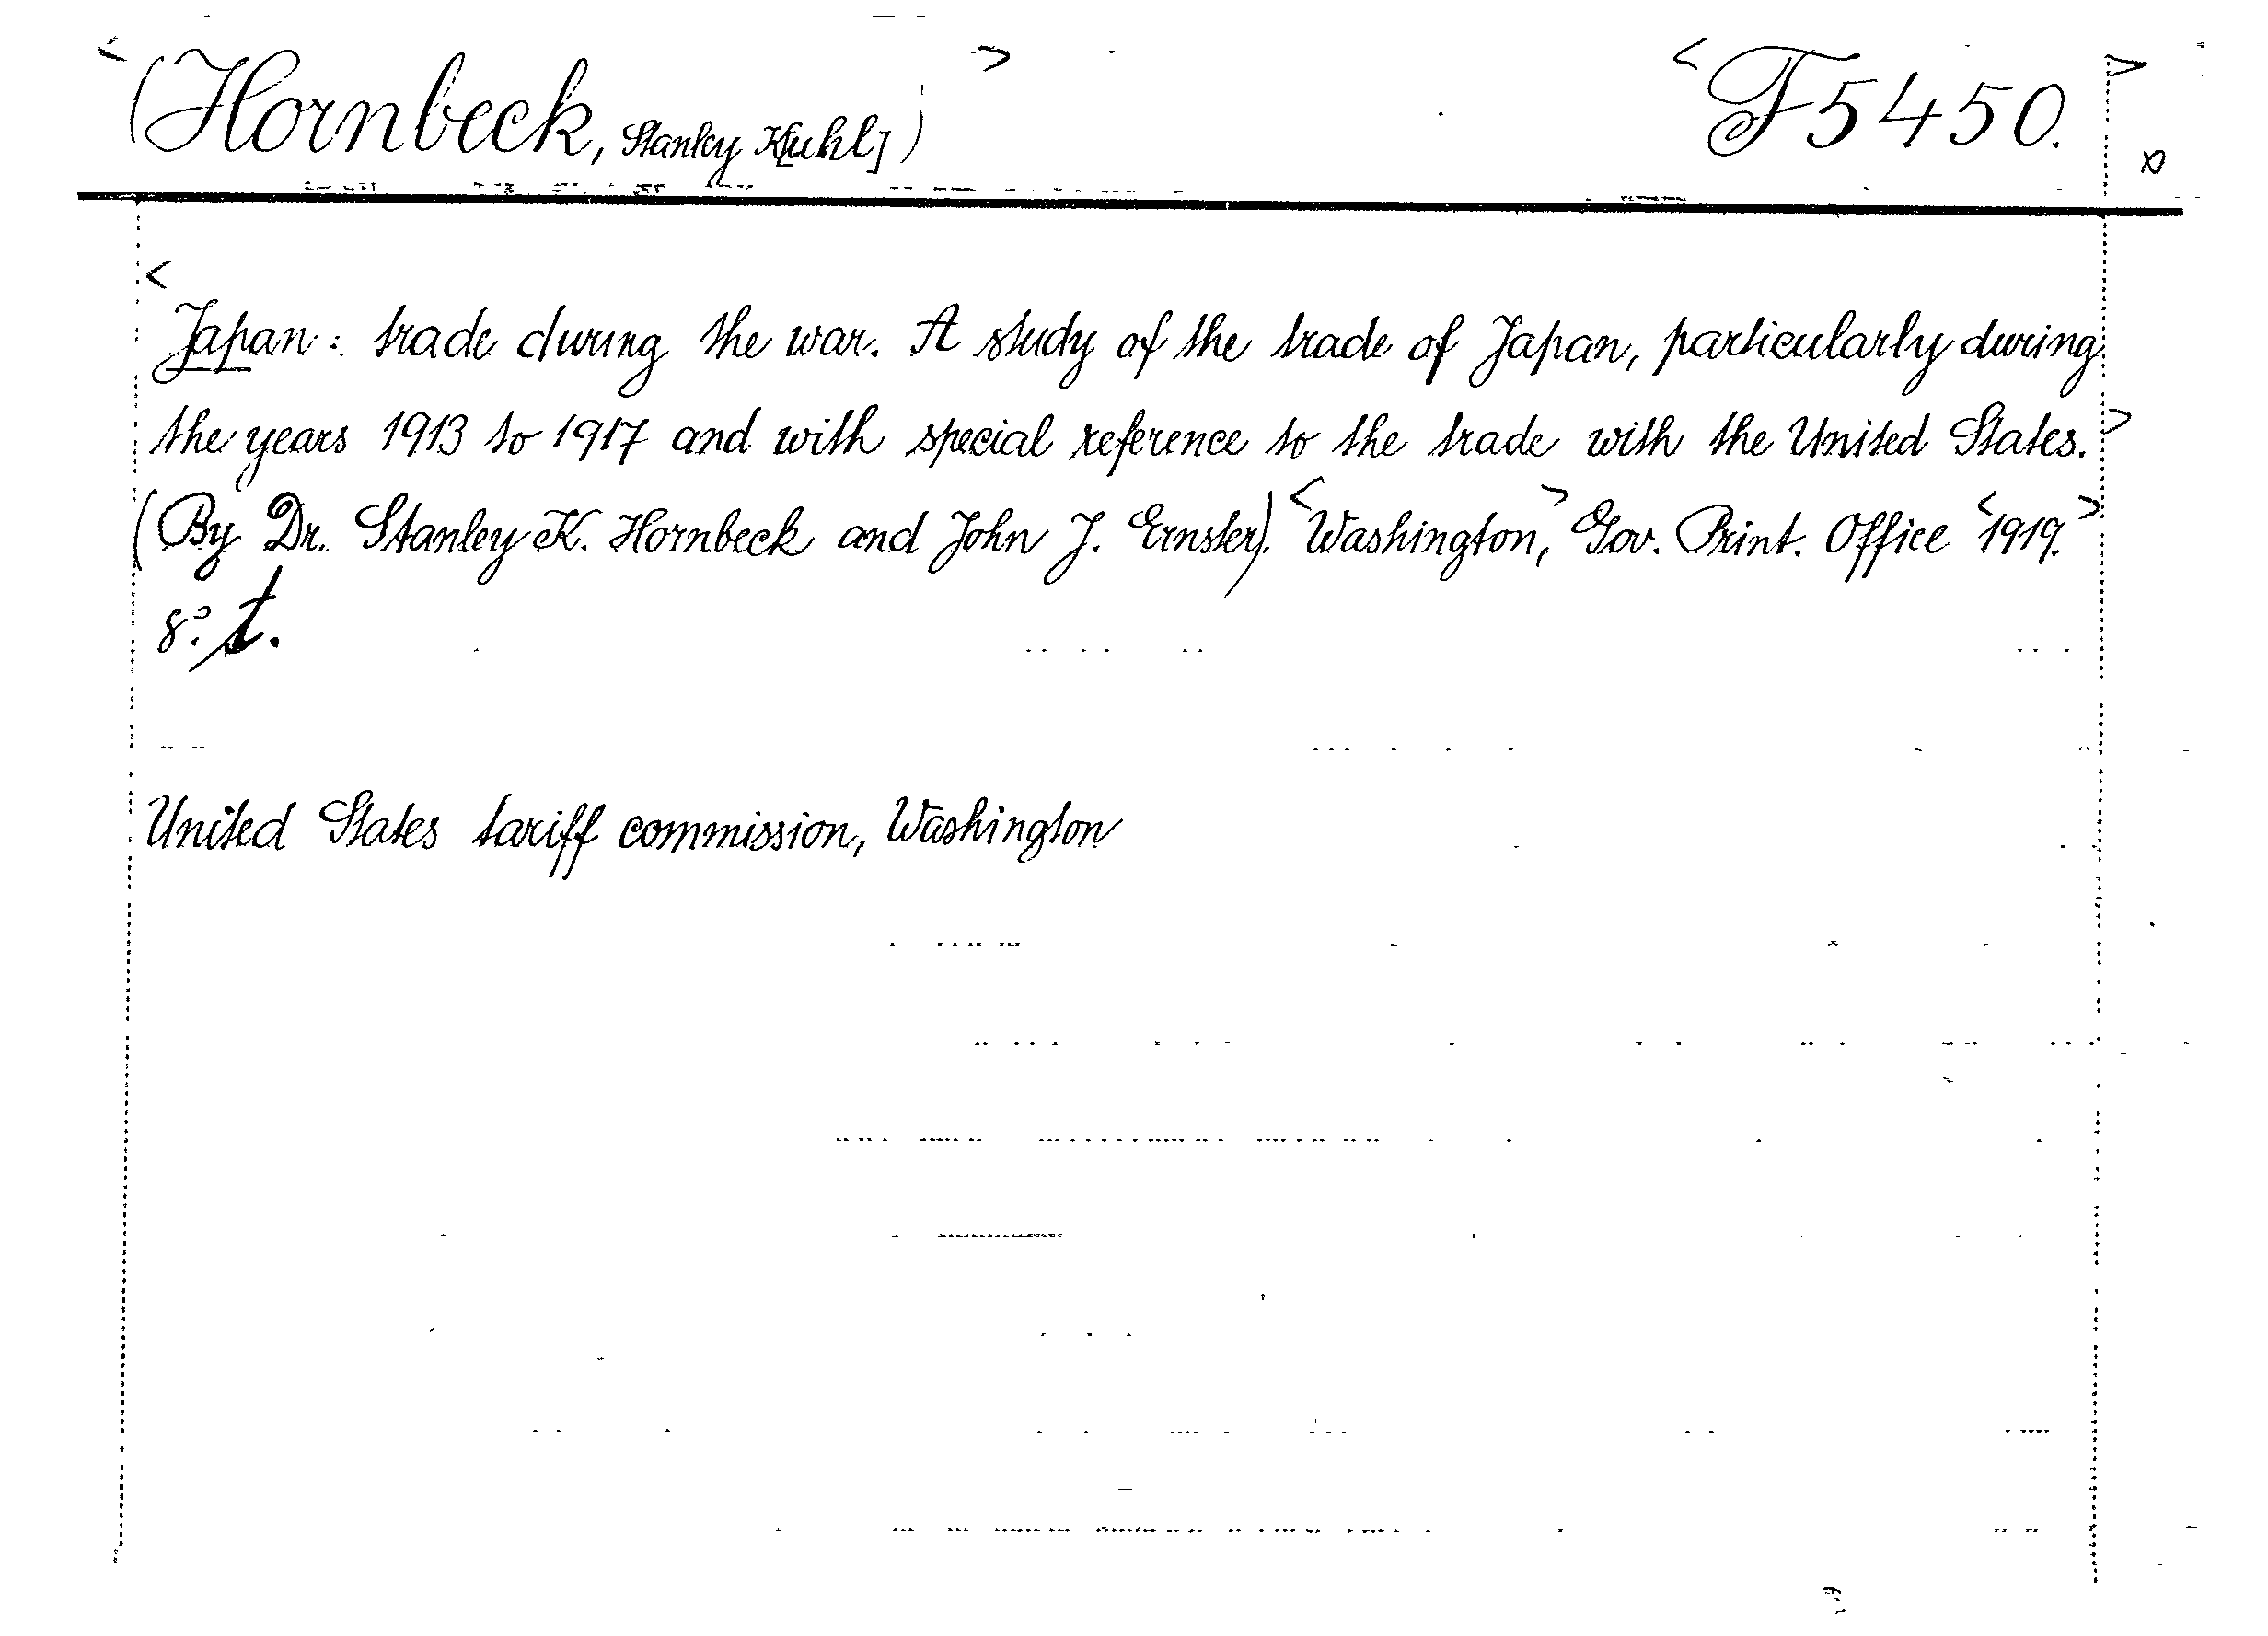 <(Hornbeck, Stanley K[uhl])> <F5450.>
<Japan: trade during the war. A study of the trade of Japan, particularly during
the years 1913 to 1917 and with special reference to the trade with the United States.>
(By Dr. Stanley K. Hornbeck and John J. Ernster). <Washington,> Gov. Print. Office <1919.>
8º. t.
United States tariff commission, Washington